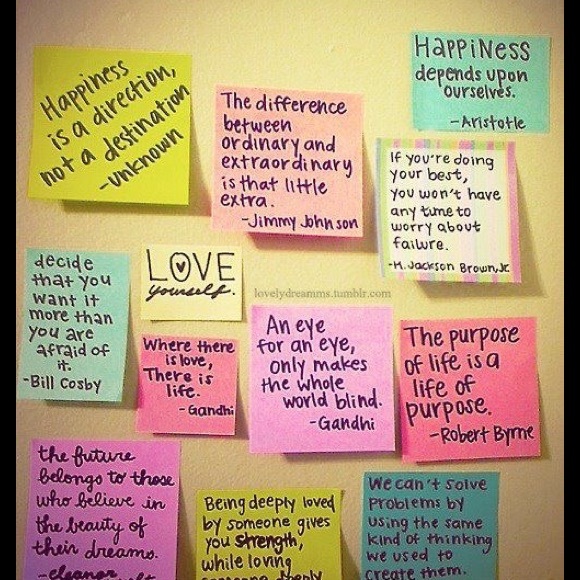 Happiness
is a direction,
not a destination
-unknown
The difference
between
ordinary and
extraordinary
is that little
extra.
-Jimmy Johnson
HAPPiNESS
depends upon
ourselves.
-Aristotle
If you're doing
your best,
you won't have
any time to
worry about
failure.
-H. Jackson Brown, Jr.
decide
that you
want it
more than
you are
afraid of
it.
-Bill Cosby
LOVE
yourself.
lovelydreamms.tumblr.com
Where there
is love,
There is
life.
-Gandhi
An eye
for an eye,
only makes
the whole
world blind.
-Gandhi
The purpose
of life is a
life of
purpose.
-Robert Byrne
the future
belongs to those
who believe in
the beauty of
their dreams.
-eleanor
Being deeply loved
by someone gives
you strength,
while loving
someone deeply
We can't solve
problems by
using the same
kind of thinking
we used to
create them.